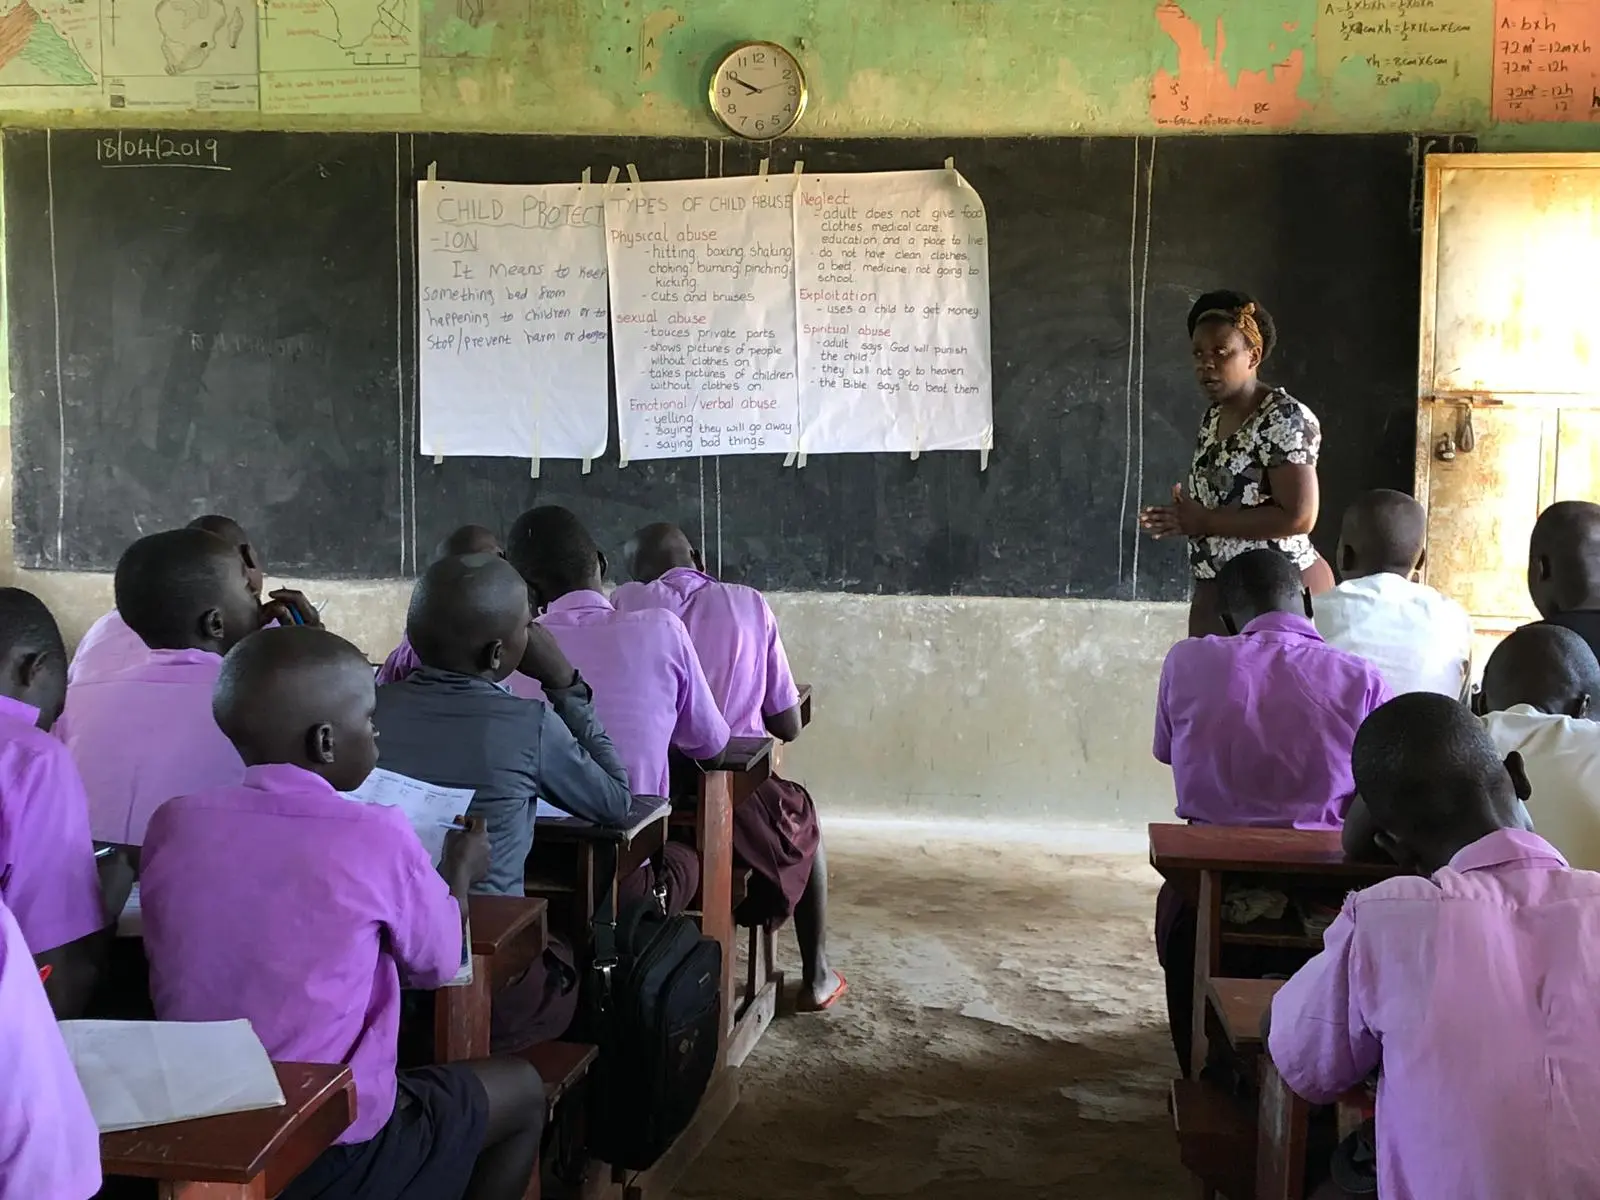 A = b/2 x b x h = b/2 x b x h
= 8cm x 6cm
8cm²
A = b x h
72m² = 12m x h
72m² = 12h
72m² = 12h
12 12
12
11
1
10
2
9
3
8
4
7
6
5
18/04/2019
CHILD PROTECT
-ION
It Means to keep
something bad from
happening to children or to
stop/prevent harm or danger
TYPES OF CHILD ABUSE
Physical abuse
- hitting, boxing, shaking,
choking, burning, pinching,
kicking.
- cuts and bruises
sexual abuse
- touces private parts
- shows pictures of people
without clothes on
- takes pictures of children
without clothes on.
Emotional/verbal abuse
- yelling
- saying they will go away
- saying bad things
Neglect
- adult does not give food
clothes, medical care,
education and a place to live
- do not have clean clothes,
a bed, medicine, not going to
school.
Exploitation
- uses a child to get money
Spiritual abuse
- adult says God will punish
the child.
- they will not go to heaven
- the Bible says to beat them